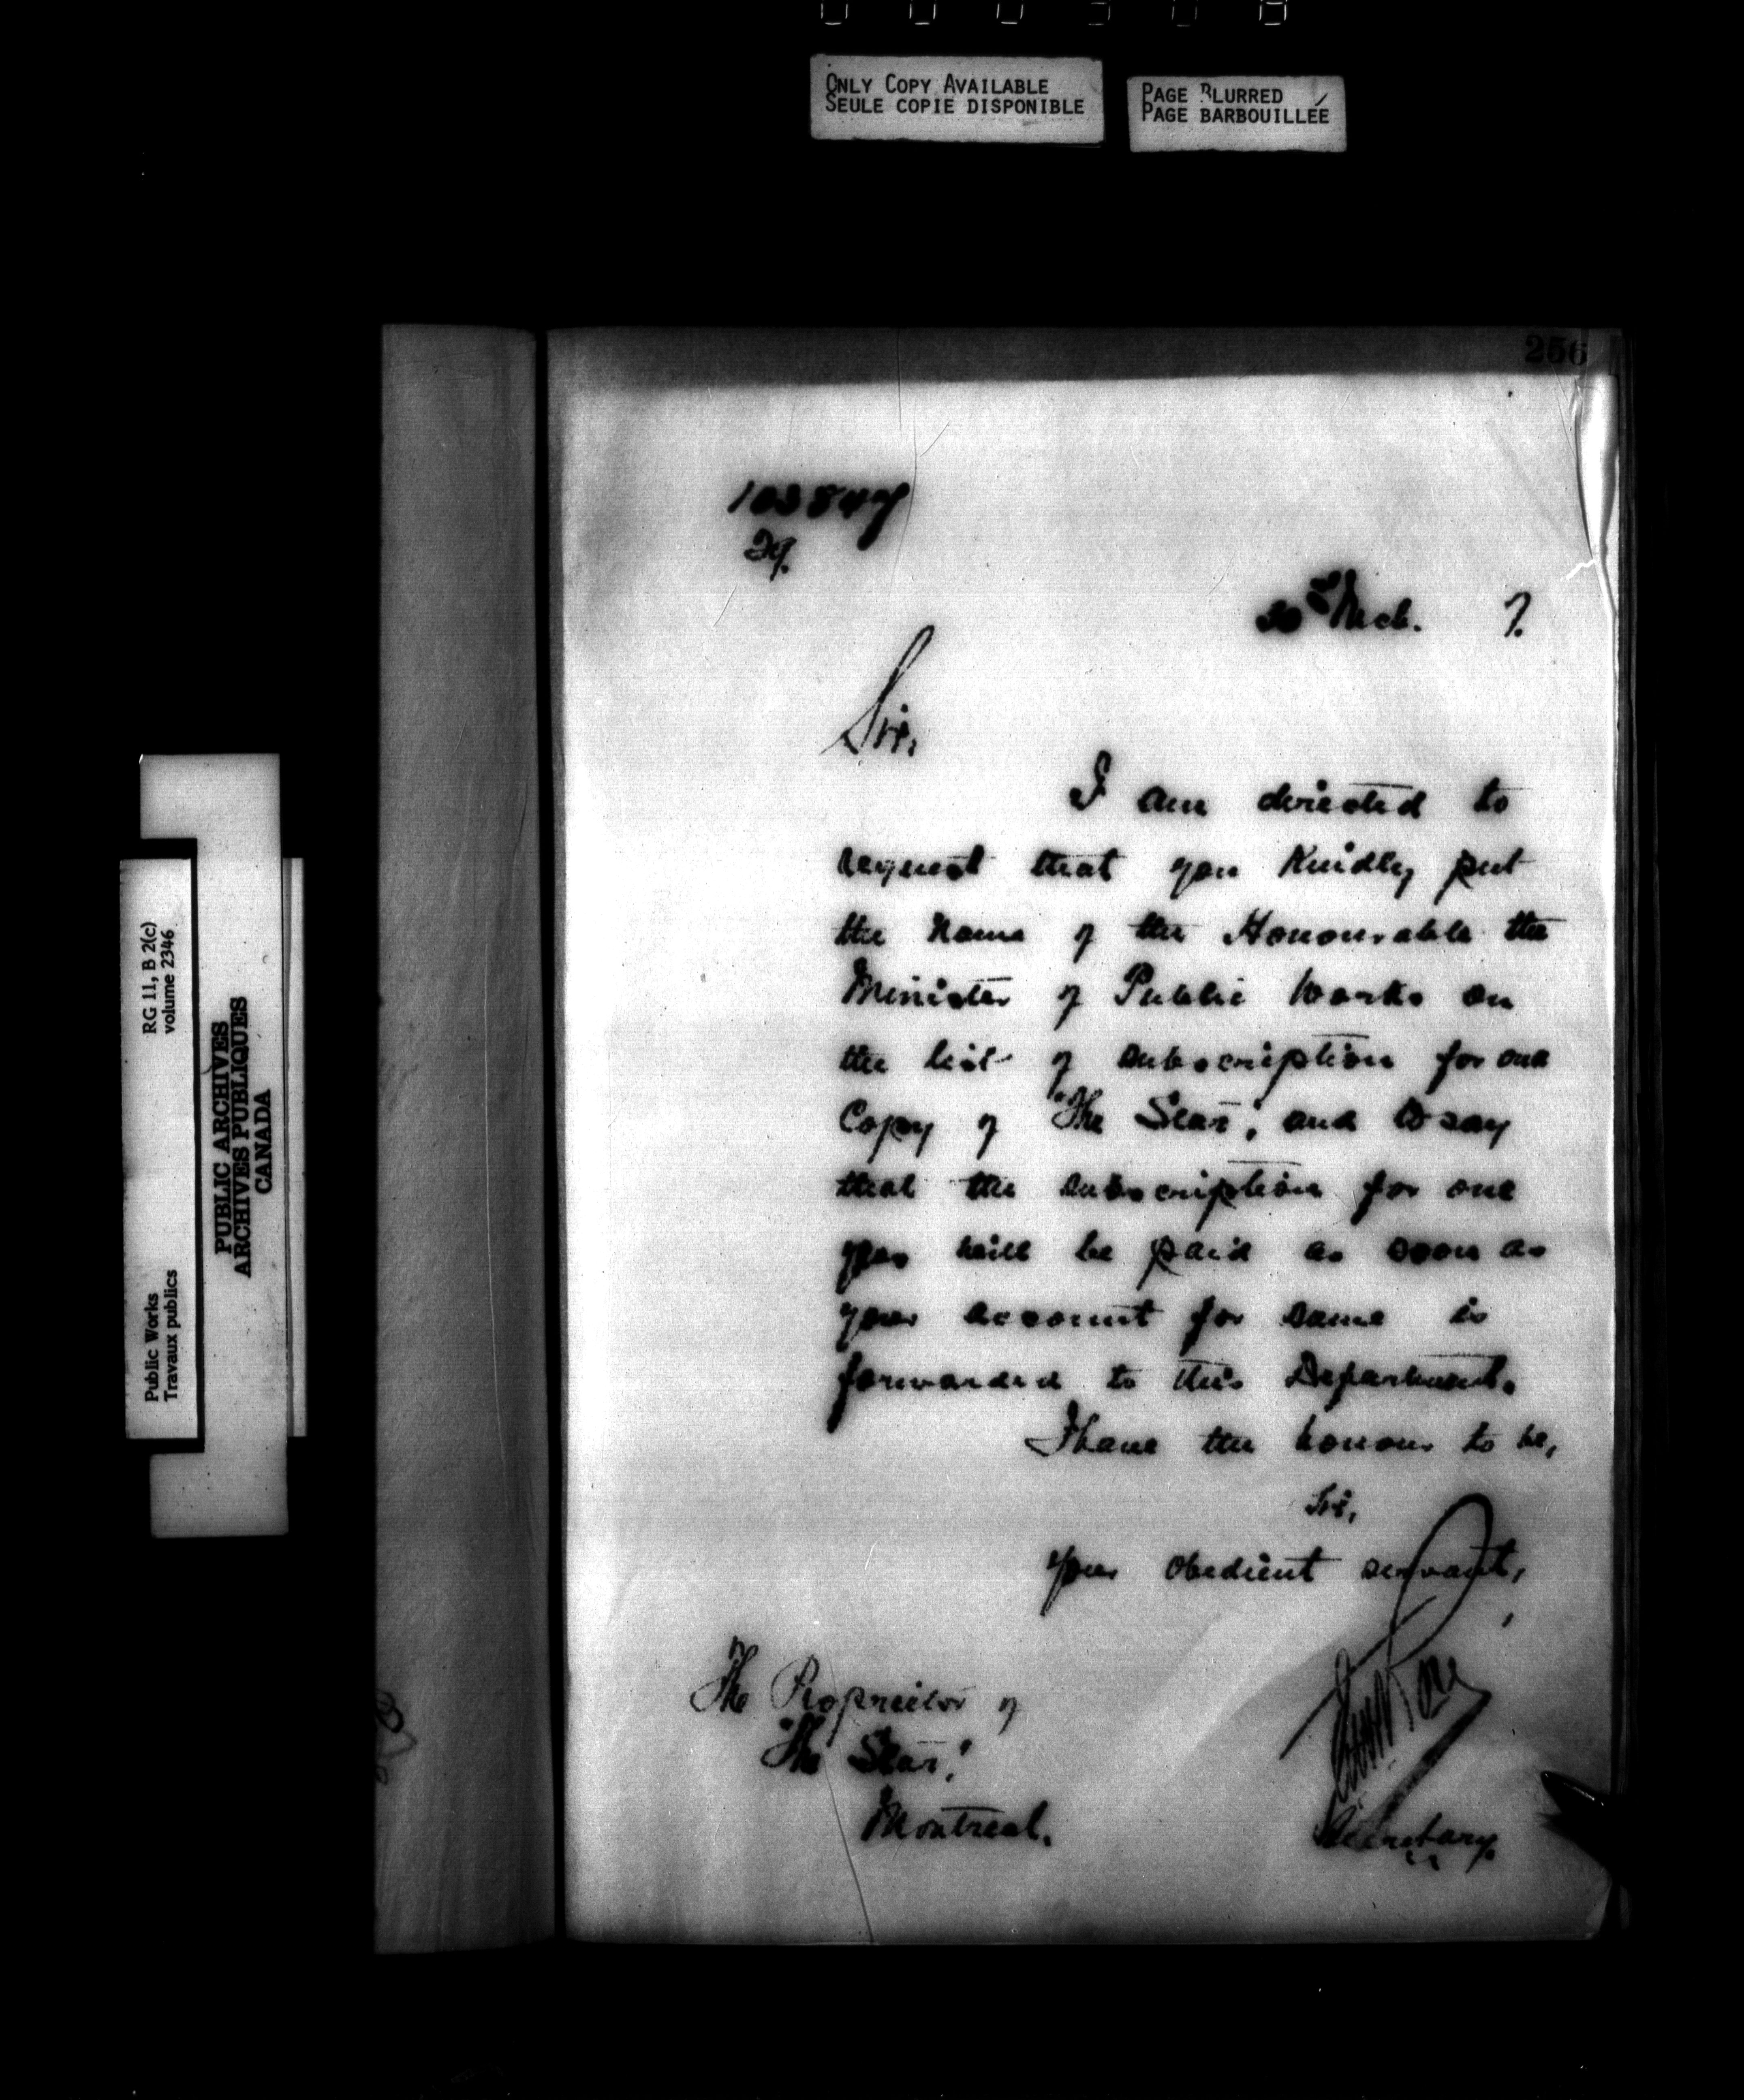 ONLY COPY AVAILABLE
SEULE COPIE DISPONIBLE
PAGE BLURRED
PAGE BARBOUILLÉE
256
RG 11, B 2(c)
volume 2346
PUBLIC ARCHIVES
ARCHIVES PUBLIQUES
CANADA
Public Works
Travaux publics
103847
29.
Sir,
I am directed to
request that you Kindly put
the name of the Honourable the
Minister of Public Works on
the list of subscription for one
Copy of "The Star", and to say
that the subscription for one
year will be paid as soon as
your account for same is
forwarded to this Department.
I have the honour to be,
Sir,
Your obedient servant,
The Proprietor of
"The Star",
Montreal.
Secretary.